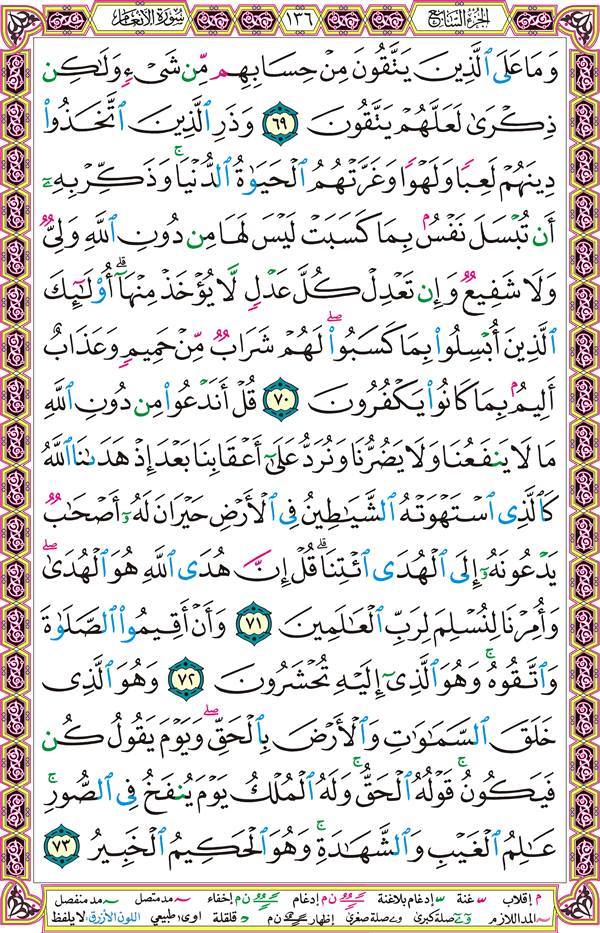 الجزء السابع
١٣٦
سورة الأنعام
وَمَا عَلَى ٱلَّذِينَ يَتَّقُونَ مِنْ حِسَابِهِم مِّن شَىْءٍ وَلَٰكِن
ذِكْرَىٰ لَعَلَّهُمْ يَتَّقُونَ ٦٩ وَذَرِ ٱلَّذِينَ ٱتَّخَذُوا۟
دِينَهُمْ لَعِبًا وَلَهْوًا وَغَرَّتْهُمُ ٱلْحَيَوٰةُ ٱلدُّنْيَا ۚ وَذَكِّرْ بِهِۦٓ
أَن تُبْسَلَ نَفْسٌۢ بِمَا كَسَبَتْ لَيْسَ لَهَا مِن دُونِ ٱللَّهِ وَلِىٌّ
وَلَا شَفِيعٌ وَإِن تَعْدِلْ كُلَّ عَدْلٍ لَّا يُؤْخَذْ مِنْهَآ ۗ أُو۟لَٰٓئِكَ
ٱلَّذِينَ أُبْسِلُوا۟ بِمَا كَسَبُوا۟ ۖ لَهُمْ شَرَابٌ مِّنْ حَمِيمٍ وَعَذَابٌ
أَلِيمٌۢ بِمَا كَانُوا۟ يَكْفُرُونَ ٧٠ قُلْ أَنَدْعُوا۟ مِن دُونِ ٱللَّهِ
مَا لَا يَنفَعُنَا وَلَا يَضُرُّنَا وَنُرَدُّ عَلَىٰٓ أَعْقَابِنَا بَعْدَ إِذْ هَدَىٰنَا ٱللَّهُ
كَٱلَّذِى ٱسْتَهْوَتْهُ ٱلشَّيَٰطِينُ فِى ٱلْأَرْضِ حَيْرَانَ لَهُۥٓ أَصْحَٰبٌ
يَدْعُونَهُۥٓ إِلَى ٱلْهُدَى ٱئْتِنَا ۗ قُلْ إِنَّ هُدَى ٱللَّهِ هُوَ ٱلْهُدَىٰ ۖ
وَأُمِرْنَا لِنُسْلِمَ لِرَبِّ ٱلْعَٰلَمِينَ ٧١ وَأَنْ أَقِيمُوا۟ ٱلصَّلَوٰةَ
وَٱتَّقُوهُ ۚ وَهُوَ ٱلَّذِىٓ إِلَيْهِ تُحْشَرُونَ ٧٢ وَهُوَ ٱلَّذِى
خَلَقَ ٱلسَّمَٰوَٰتِ وَٱلْأَرْضَ بِٱلْحَقِّ ۖ وَيَوْمَ يَقُولُ كُن
فَيَكُونُ ۚ قَوْلُهُ ٱلْحَقُّ ۚ وَلَهُ ٱلْمُلْكُ يَوْمَ يُنفَخُ فِى ٱلصُّورِ ۚ
عَٰلِمُ ٱلْغَيْبِ وَٱلشَّهَٰدَةِ ۚ وَهُوَ ٱلْحَكِيمُ ٱلْخَبِيرُ ٧٣
م إقلاب غنة إدغام بلاغنة ن م إدغام ن م إخفاء مد متصل مد منفصل
المد اللازم صلة كبرى صلة صغرى إظهار ن م قلقلة اوى: طبيعي اللون الأزرق: لا يلفظ